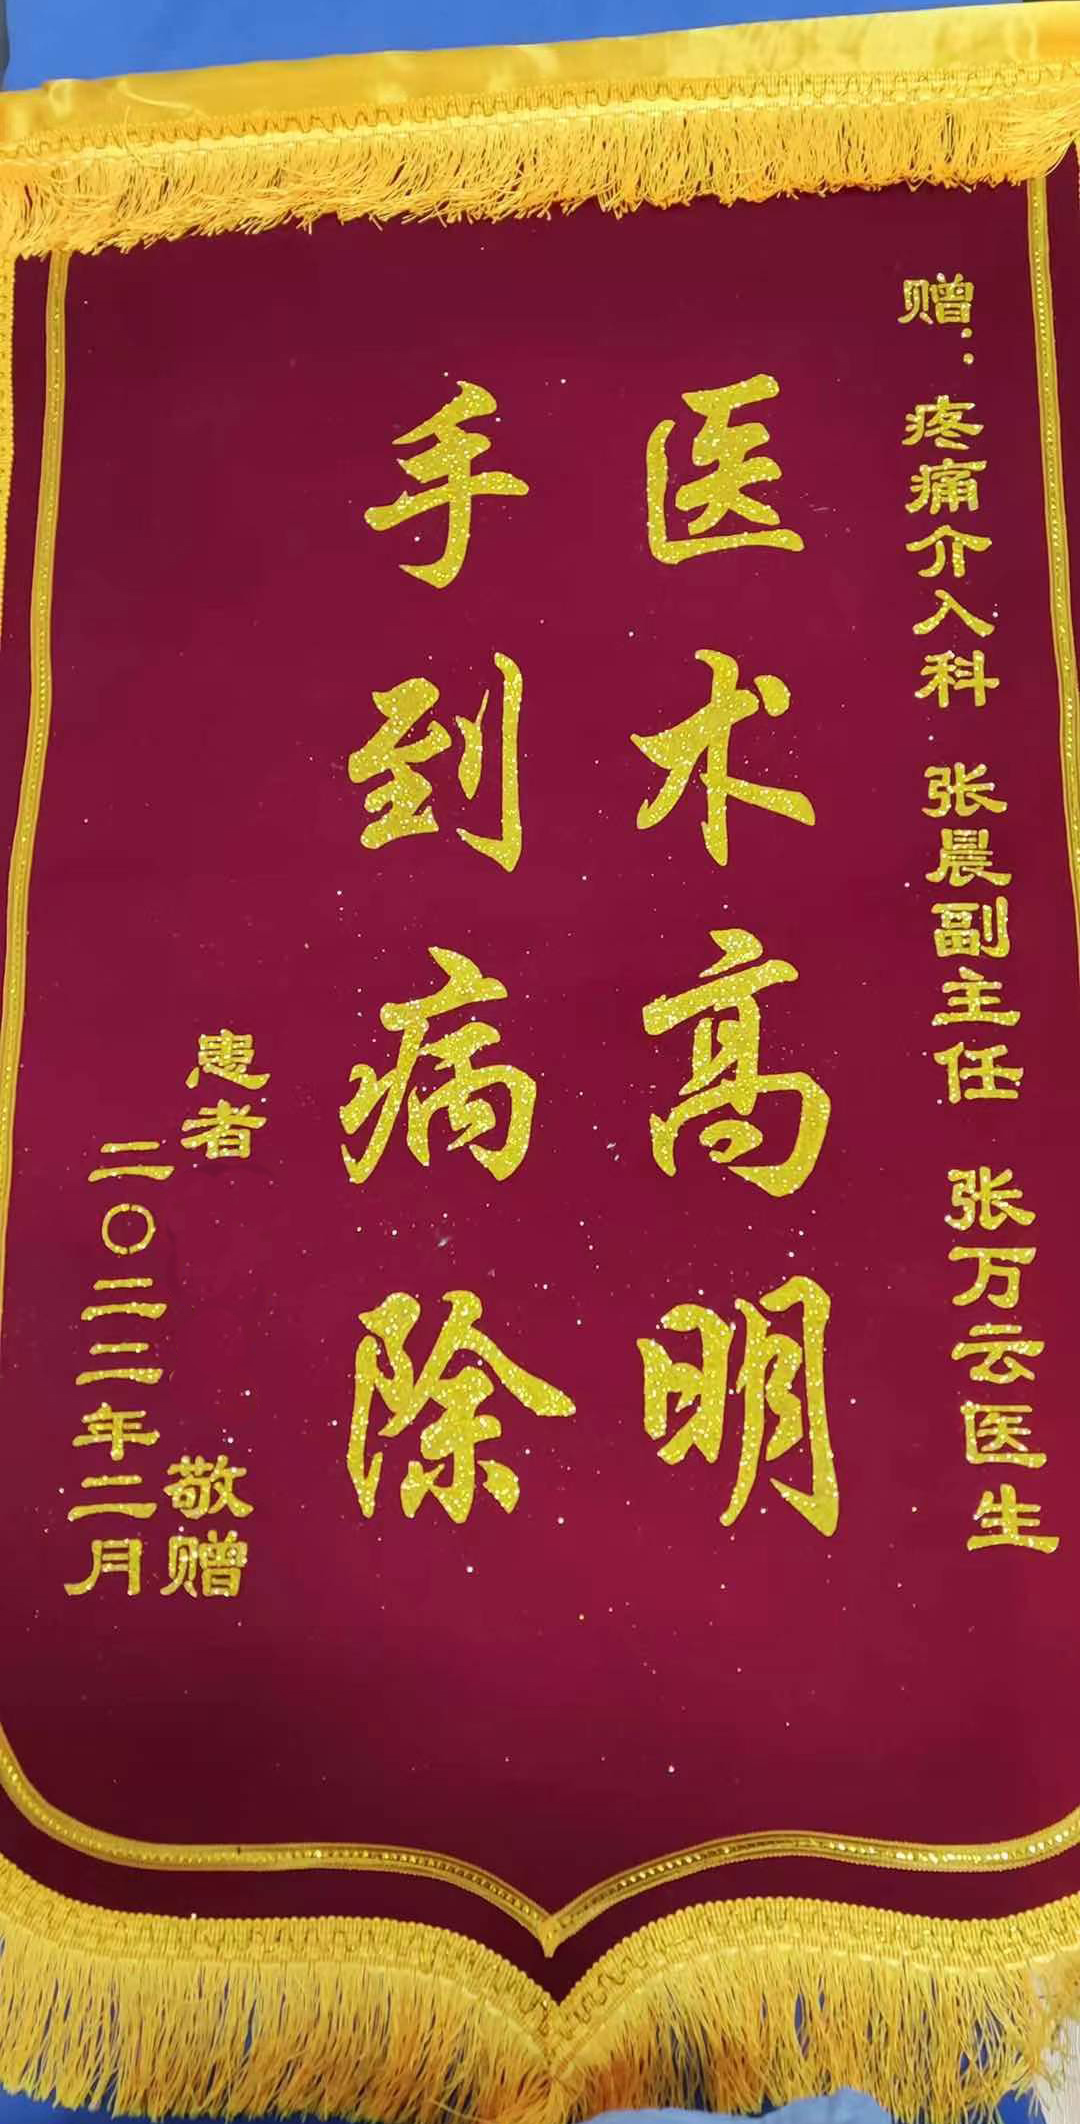 赠：疼痛介入科 张晨副主任 张万云医生
医术高明
手到病除
患者 敬赠
二〇二二年二月